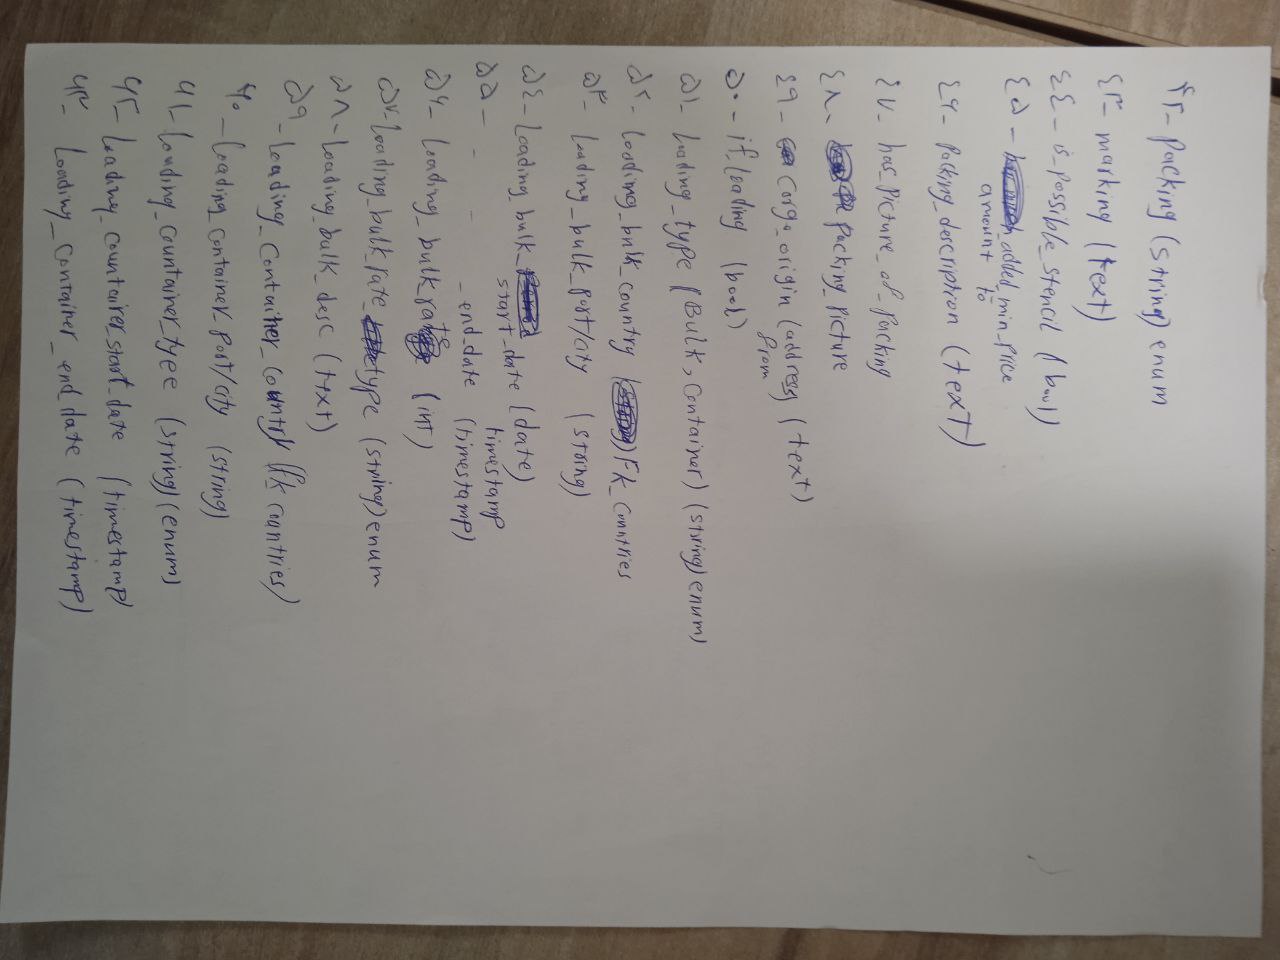 ۴۲- packing (string) enum
۴۳- marking (text)
۴۴- is_possible_stencil (bool)
۴۵- added_min_price
amount to
۴۶- packing_description (text)
۴۷- has_picture_of_packing
۴۸- packing_picture
۴۹- corgo_origin (address) (text)
from
۵۰- if_loading (bool)
۵۱- loading_type (Bulk, container) (string) enum)
۵۲- loading_bulk_country FK_countries
۵۳- loading_bulk_port/city (string)
۵۴- loading_bulk_start_date (date)
timestamp
۵۵- - - _end_date (timestamp)
۵۶- loading_bulk_rate (int)
۵۷- loading_bulk_rate_type (string) enum
۵۸- loading_bulk_desc (text)
۵۹- loading_container_country (fk countries)
۶۰- loading_container_port/city (string)
۶۱- loading_countainer_type (string) (enum)
۶۲- loading_countainer_start_date (timestamp)
۶۳- loading_container_end_date (timestamp)